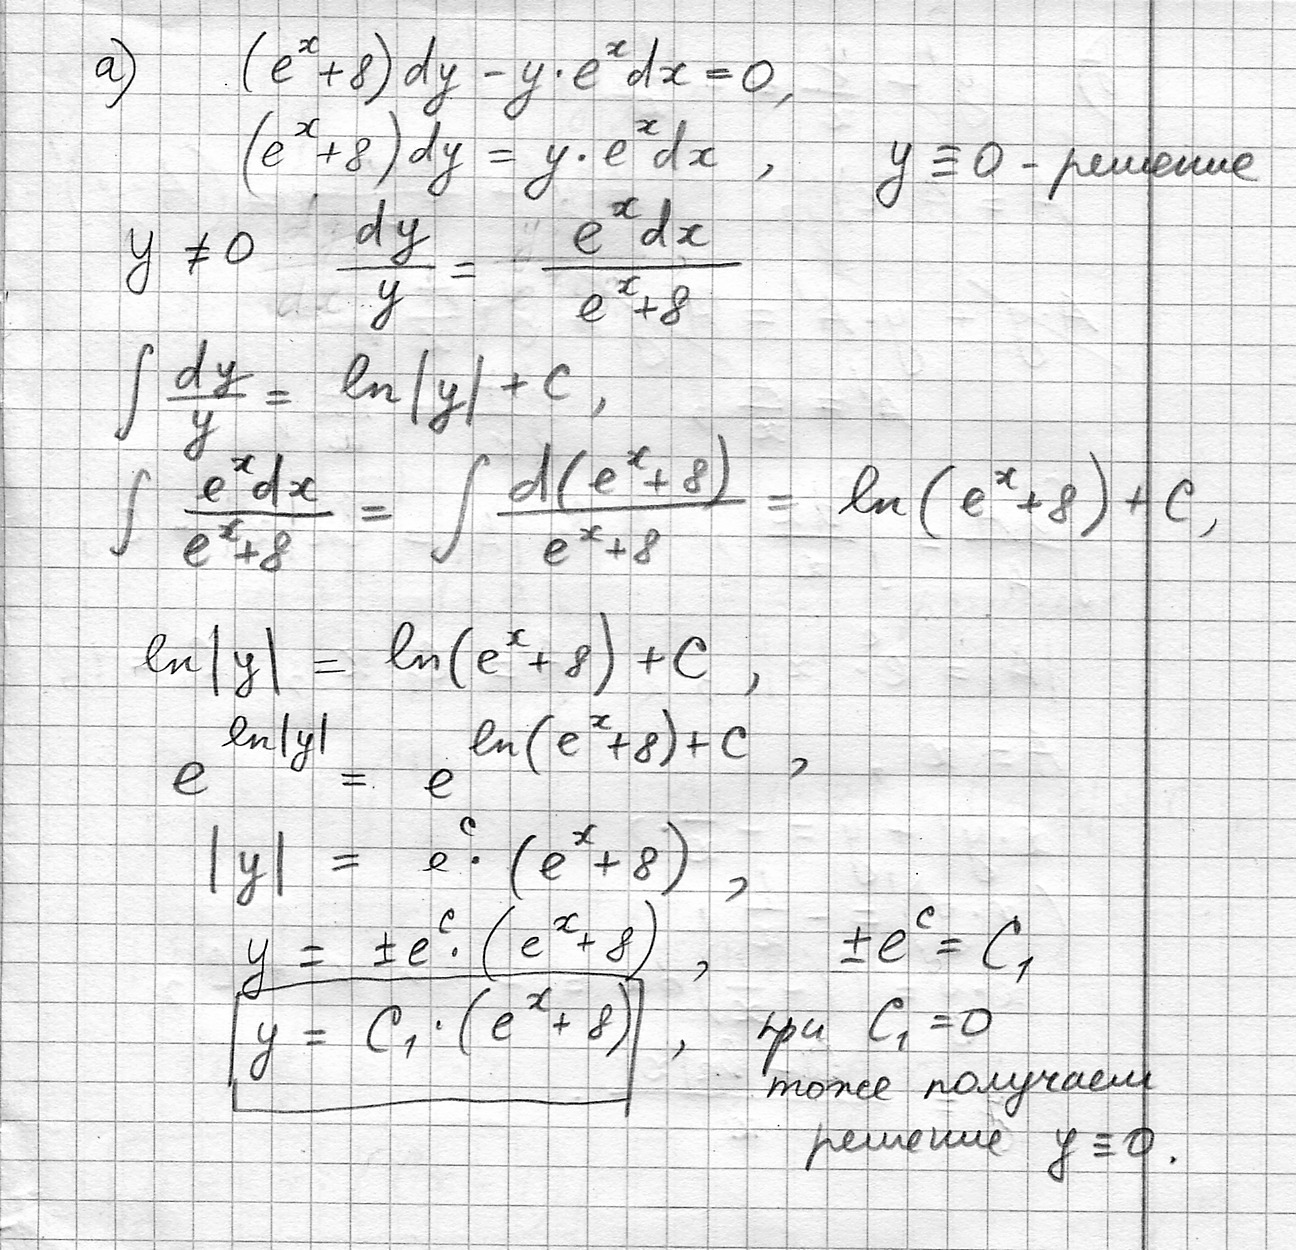 а) (e^x+8)dy - y·e^x dx = 0,
(e^x+8)dy = y·e^x dx , y ≡ 0 - решение
y ≠ 0 dy/y = e^x dx/(e^x+8)
∫ dy/y = ln|y| + C ,
∫ e^x dx/(e^x+8) = ∫ d(e^x+8)/(e^x+8) = ln(e^x+8) + C,
ln|y| = ln(e^x+8) + C ,
e^(ln|y|) = e^(ln(e^x+8)+C) ,
|y| = e^c · (e^x+8) ,
y = ±e^c · (e^x+8) , ±e^c = C₁
y = C₁·(e^x+8) , при C₁ = 0
тоже получаем
решение y ≡ 0.